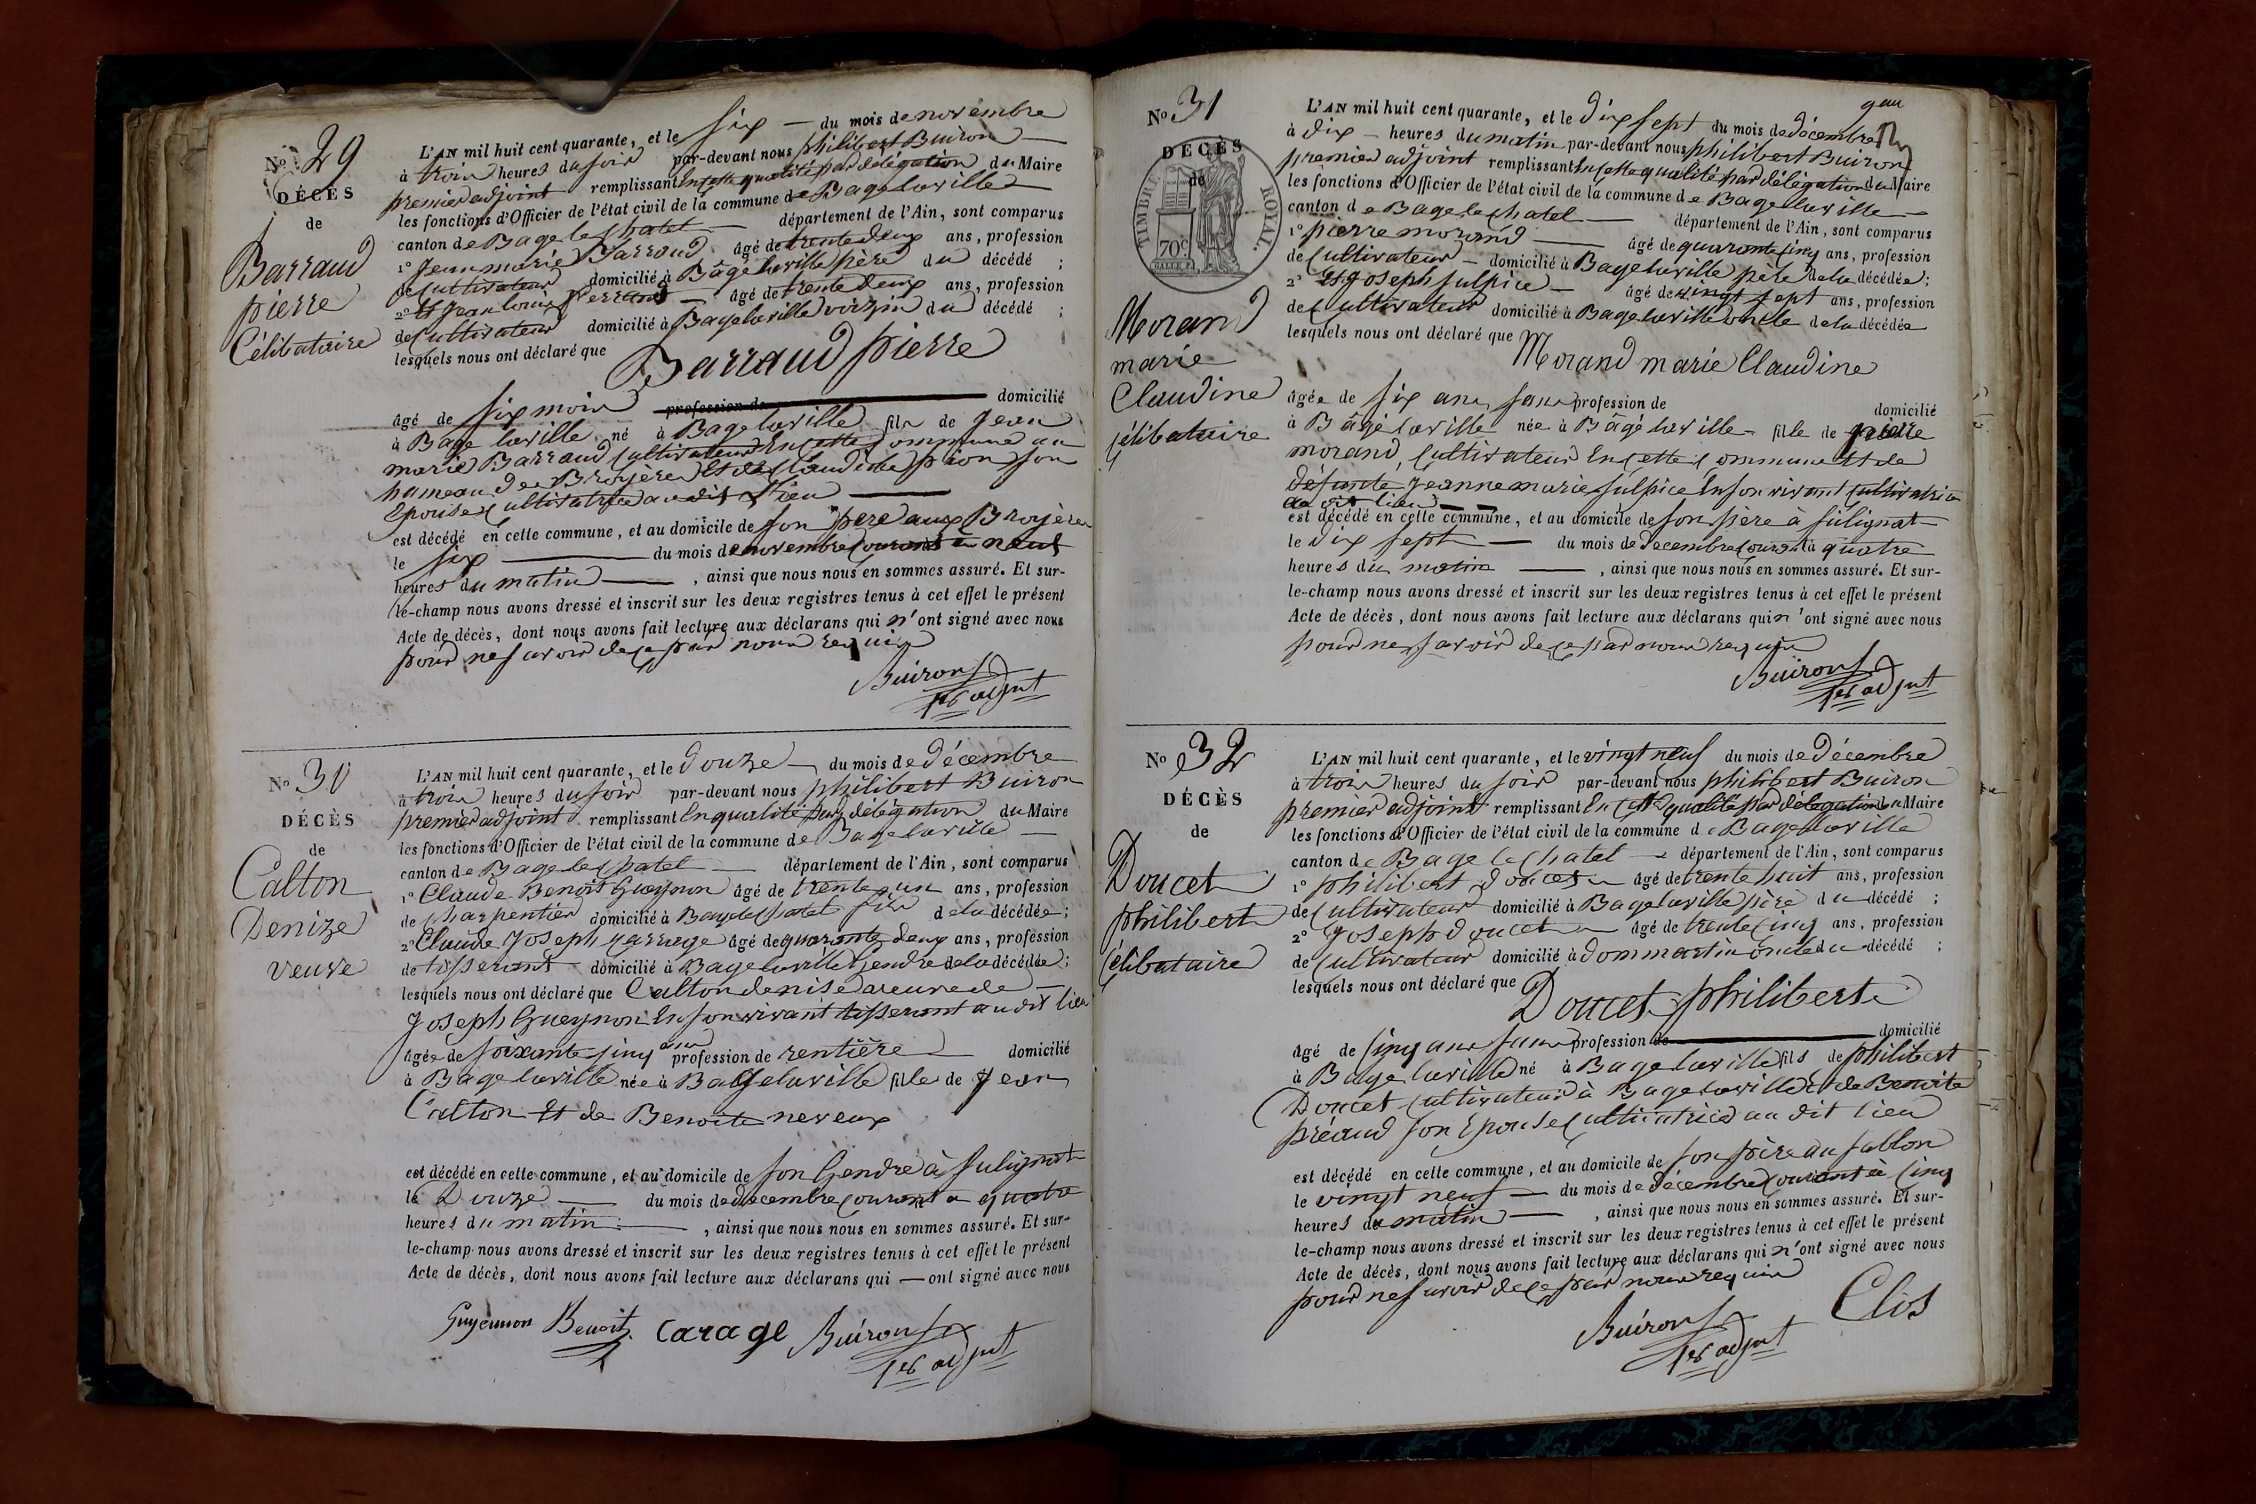 No 29
DÉCÈS
de
Barraud
pierre
Célibataire
L'AN mil huit cent quarante, et le six du mois de novembre
à trois heures du soir par-devant nous philibert Buiron
premier adjoint remplissant En cette qualité par délégation du Maire
les fonctions d'Officier de l'état civil de la commune de Bagelaville
canton de Bage le chatel département de l'Ain, sont comparus
1° Jean marie Barraud âgé de trente deux ans, profession
de Cultivateur domicilié à Bâgé laville père du décédé ;
2° Et Jean louis âgé de trente deux ans, profession
de Cultivateur domicilié à Bagelaville voizin du décédé ;
lesquels nous ont déclaré que
Barraud pierre
âgé de six mois profession de domicilié
à Bage laville né à Bagelaville fils de Jean
marie Barraud Cultivateur En cette Commune au
hameau des Broyères Et de Claudine pion son
Epouse Cultivatrice au dit Lieu
est décédé en cette commune, et au domicile de son père aux Broyères
le six du mois de novembre courant à neuf
heures du matin , ainsi que nous nous en sommes assuré. Et sur-
le-champ nous avons dressé et inscrit sur les deux registres tenus à cet effet le présent
Acte de décès, dont nous avons fait lecture aux déclarans qui n'ont signé avec nous
pour ne savoir de ce par nous requis
Buiron
1er adjnt
No 30
DÉCÈS
de
Calton
Denize
veuve
L'AN mil huit cent quarante, et le douze du mois de décembre
à trois heures du soir par-devant nous philibert Buiron
premier adjoint remplissant En qualité par délégation du Maire
les fonctions d'Officier de l'état civil de la commune de Bagelaville
canton de Bage le chatel département de l'Ain, sont comparus
1° Claude Benoit Gueynon âgé de trente un ans, profession
de Charpentier domicilié à Bage le chatel fils de la décédée ;
2° Claude Joseph garrage âgé de quarante deux ans, profession
de tisserant domicilié à Bagelaville Gendre de la décédée ;
lesquels nous ont déclaré que Calton denise veuve de
Joseph Gueynon En son vivant tisserant au dit lieu
âgée de soixante cinq ans profession de rentière domicilié
à Bagelaville née à Bagelaville fille de Jean
Calton Et de Benoite neveux
est décédé en cette commune, et au domicile de son Gendre à fulignat
le Douze du mois de décembre courant à quatre
heures du matin , ainsi que nous nous en sommes assuré. Et sur-
le-champ nous avons dressé et inscrit sur les deux registres tenus à cet effet le présent
Acte de décès, dont nous avons fait lecture aux déclarans qui — ont signé avec nous
Guyennon Benoit Carage Buiron
1er adjnt
No 31
DÉCÈS
de
TIMBRE ROYAL.
70c
Morand
marie
Claudine
Célibataire
L'AN mil huit cent quarante, et le dix sept du mois de décembre
à dix heures du matin par-devant nous philibert Buiron
premier adjoint remplissant En cette qualité par délégation du Maire
les fonctions d'Officier de l'état civil de la commune de Bage laville
canton de Bage le chatel département de l'Ain, sont comparus
1° pierre morand âgé de quarante cinq ans, profession
de Cultivateur domicilié à Bagelaville père de la décédée ;
2° Et Joseph sulpice âgé de vingt sept ans, profession
de Cultivateur domicilié à Bagelaville oncle de la décédée
lesquels nous ont déclaré que
Morand marie Claudine
âgée de six ans sans profession de domicilié
à Bâgé laville née à Bâgé laville fille de pierre
morand, Cultivateur En cette Commune Et de
défunte Jeanne marie sulpice En son vivant cultivatrice
au dit lieu
est décédé en cette commune, et au domicile de son père à fulignat
le dix sept du mois de décembre courant à quatre
heures du matin , ainsi que nous nous en sommes assuré. Et sur-
le-champ nous avons dressé et inscrit sur les deux registres tenus à cet effet le présent
Acte de décès, dont nous avons fait lecture aux déclarans qui n'ont signé avec nous
pour ne savoir de ce par nous requis
Buiron
1er adjnt
No 32
DÉCÈS
de
Doucet
philibert
Célibataire
L'AN mil huit cent quarante, et le vingt neuf du mois de décembre
à trois heures du soir par-devant nous philibert Buiron
premier adjoint remplissant En cette qualité par délégation du Maire
les fonctions d'Officier de l'état civil de la commune de Bagelaville
canton de Bage le chatel département de l'Ain, sont comparus
1° philibert doucet âgé de trente huit ans, profession
de Cultivateur domicilié à Bagelaville père du décédé ;
2° Joseph doucet âgé de trente cinq ans, profession
de Cultivateur domicilié à dommartin oncle du décédé ;
lesquels nous ont déclaré que
Doucet philibert
âgé de cinq ans sans profession de domicilié
à Bage laville né à Bagelaville fils de philibert
Doucet Cultivateur à Bagelaville Et de Benoite
préaud son Epouse Cultivatrice au dit lieu
est décédé en cette commune, et au domicile de son père au sablon
le vingt neuf du mois de décembre courant à cinq
heures du matin , ainsi que nous nous en sommes assuré. Et sur-
le-champ nous avons dressé et inscrit sur les deux registres tenus à cet effet le présent
Acte de décès, dont nous avons fait lecture aux déclarans qui n'ont signé avec nous
pour ne savoir de ce par nous requis
Buiron Clos
1er adjnt